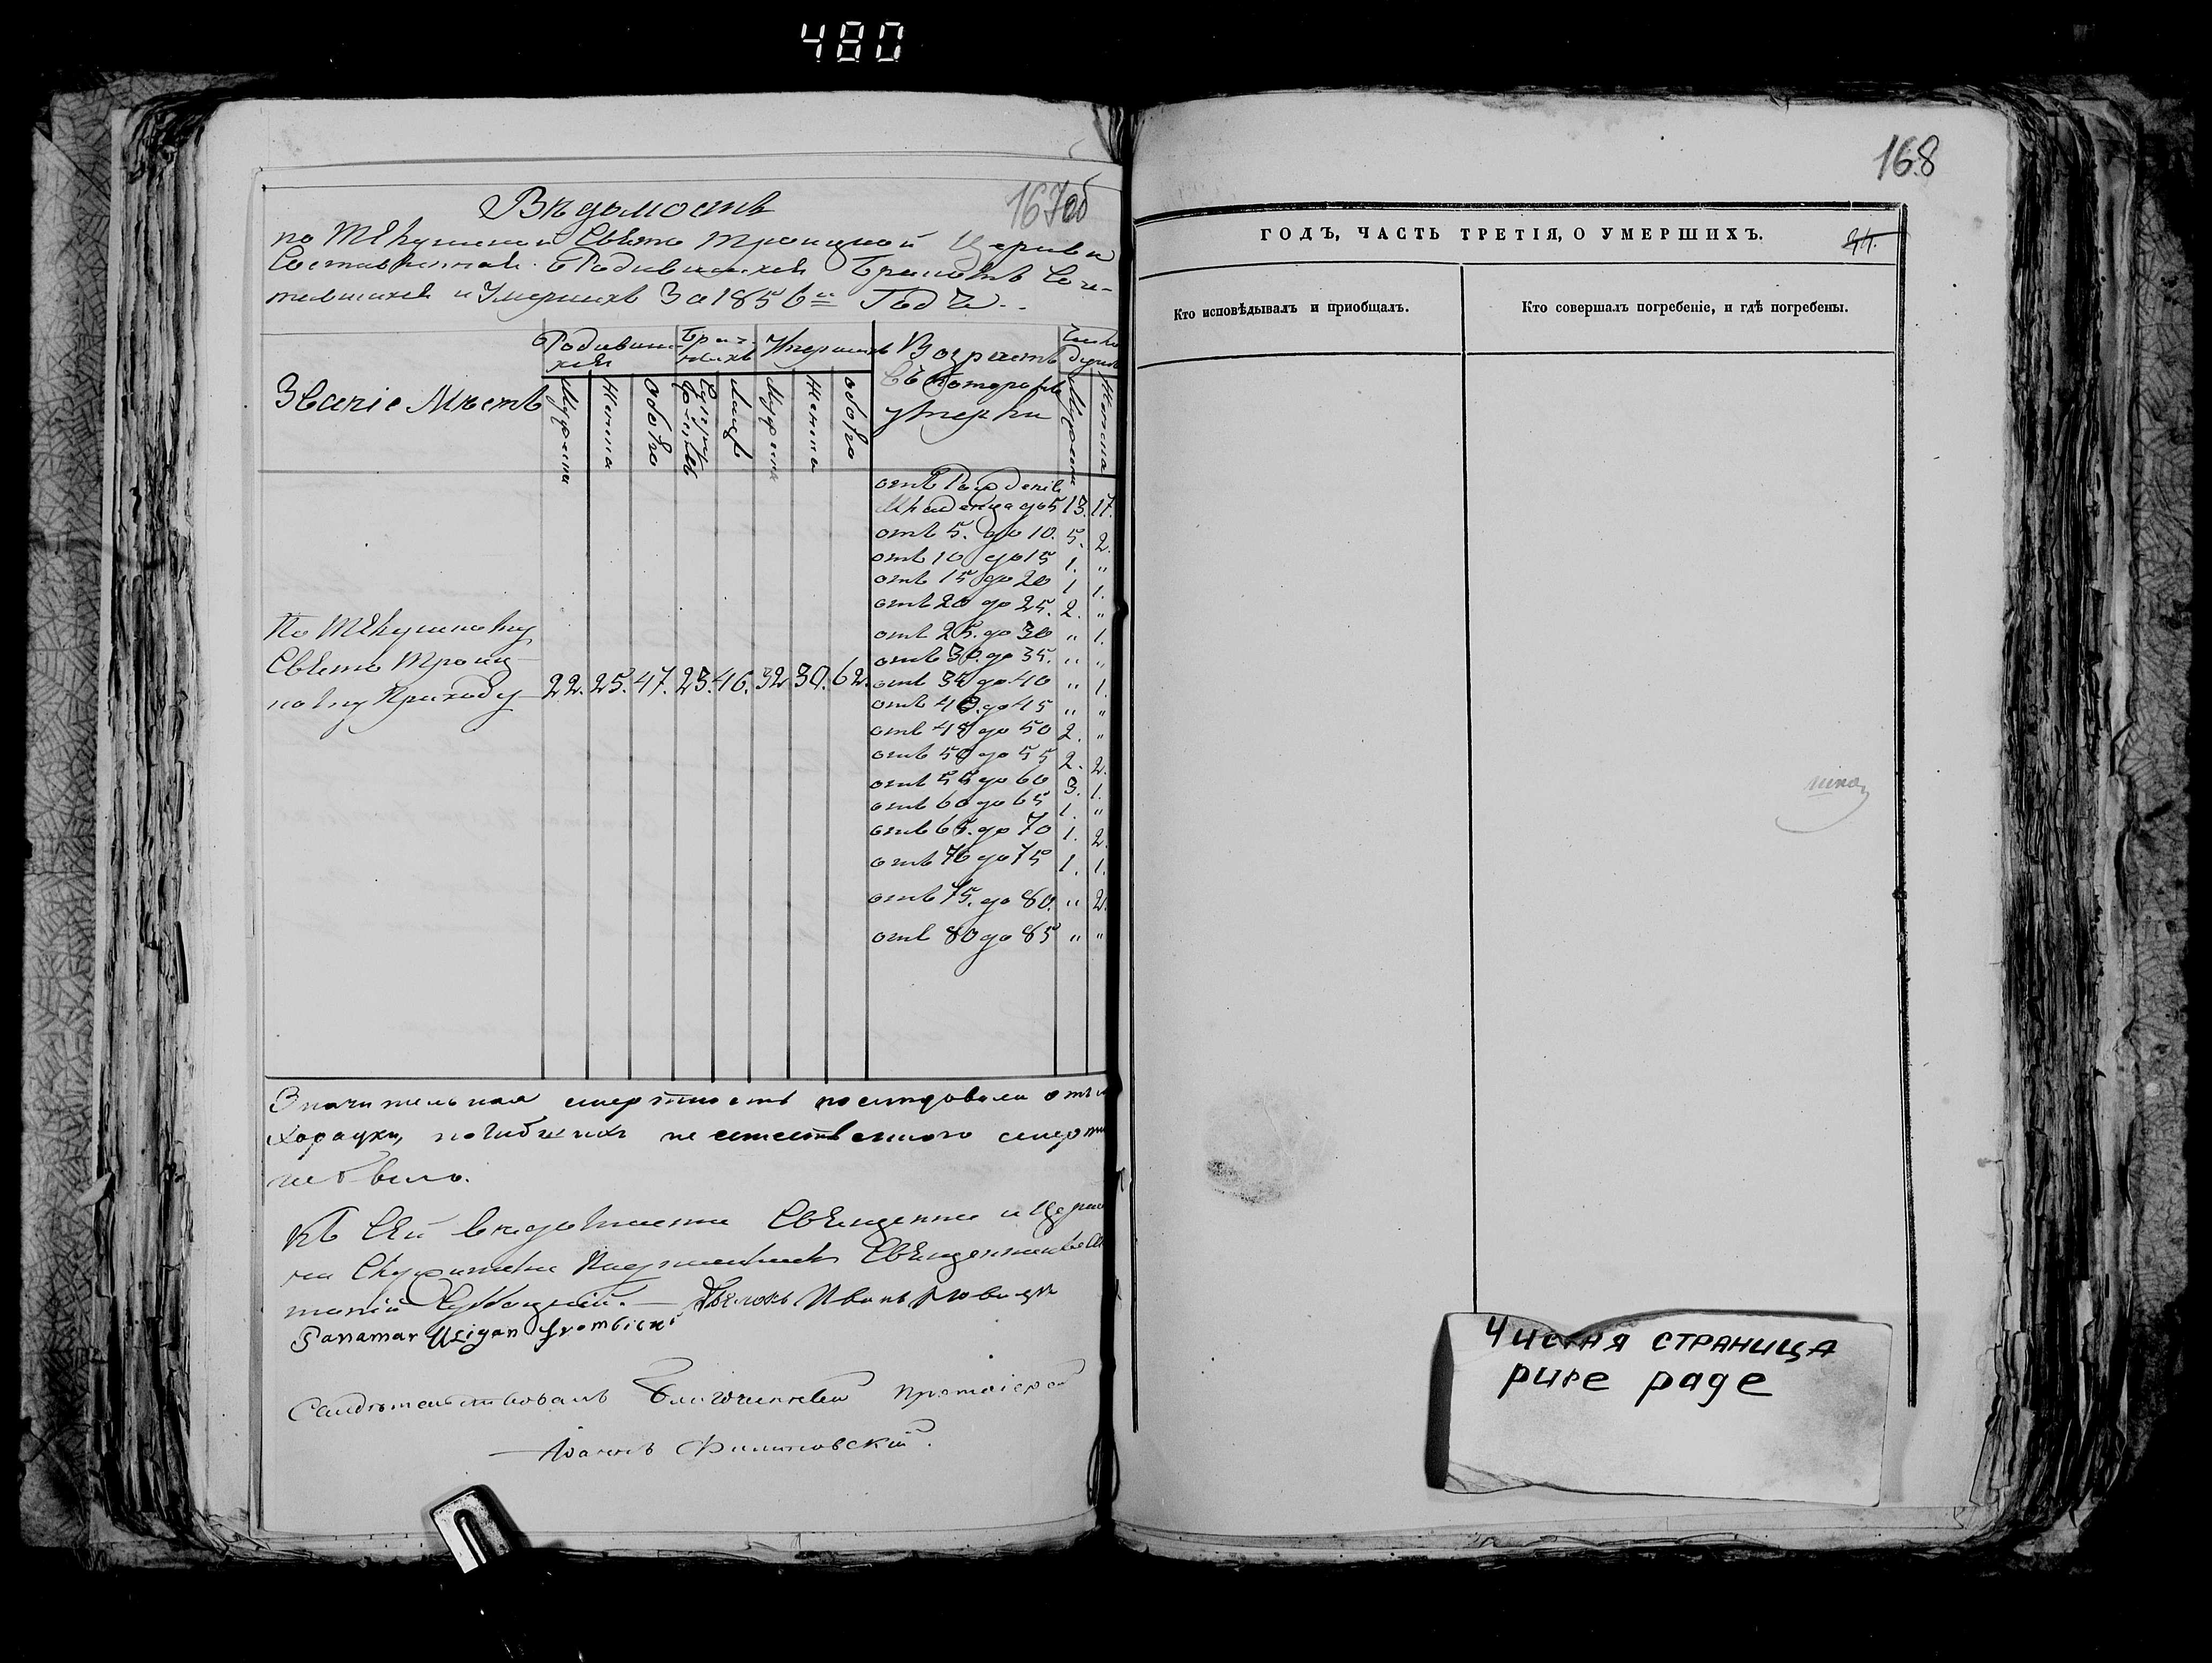 480
167об
Вѣдомость
по Текушской Свято Троицкой Церкви
Составленная о Родившихся Бракомъ Соче-
тавшихся и Умершихъ За 1856й Годъ.
Званіе Мѣстъ
Родивши-
хся
Умершихъ
Возрастъ
въ которомъ
умерли
Число
душъ
Мужеска
Женска
Обоего
Супру-
жествъ
Лицъ
Мужеска
Женска
Обоего
Мужеска
Женска
отъ Рожденія
Младенца до 5 13. 17.
отъ 5. до 10. 5. 2.
отъ 10 до 15 1. "
отъ 15 до 20 1 1.
отъ 20 до 25. 2. "
отъ 25. до 30 " 1.
отъ 30. до 35. " "
отъ 35 до 40 " 1.
отъ 40. до 45 " "
отъ 45 до 50 2. "
отъ 50 до 55 2. 2.
отъ 55 до 60 3. 1.
отъ 60 до 65 1. "
отъ 65. до 70 1. 2.
отъ 70 до 75 1. 1.
отъ 75. до 80. " 2.
отъ 80 до 85 " "
По Текушскому
Свято Троиц-
кому Приходу 22. 25. 47. 23. 46. 32 30. 62.
Значительная смертность последовала отъ
погибшихъ не естественного смерти
не было.
Къ сей вѣдомости Священно и Церко
Священникъ
Дьяконъ Иванъ
Panamar
Свидѣтельствовалъ Благочинный Протоіерей
Іоаннъ Филиповскій.
168
ГОДЪ, ЧАСТЬ ТРЕТІЯ, О УМЕРШИХЪ.
Кто исповѣдывалъ и приобщалъ.
Кто совершалъ погребеніе, и гдѣ погребены.
Чистая страница
pure page